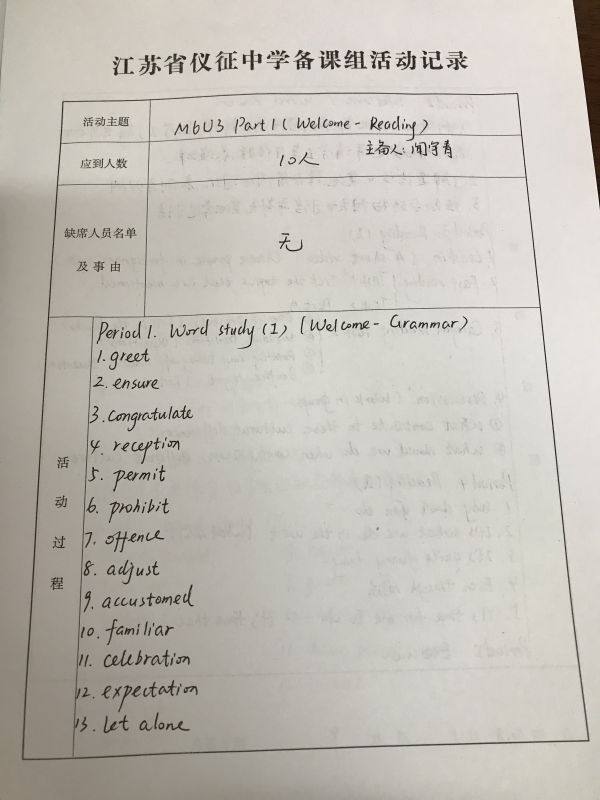 江苏省仪征中学备课组活动记录
活动主题
M6U3 Part 1 (Welcome - Reading)
应到人数
10人
主备人:闻守青
缺席人员名单
及事由
无
活动过程
Period 1. Word study (1) (Welcome - Grammar)
1. greet
2. ensure
3. congratulate
4. reception
5. permit
6. prohibit
7. offence
8. adjust
9. accustomed
10. familiar
11. celebration
12. expectation
13. let alone